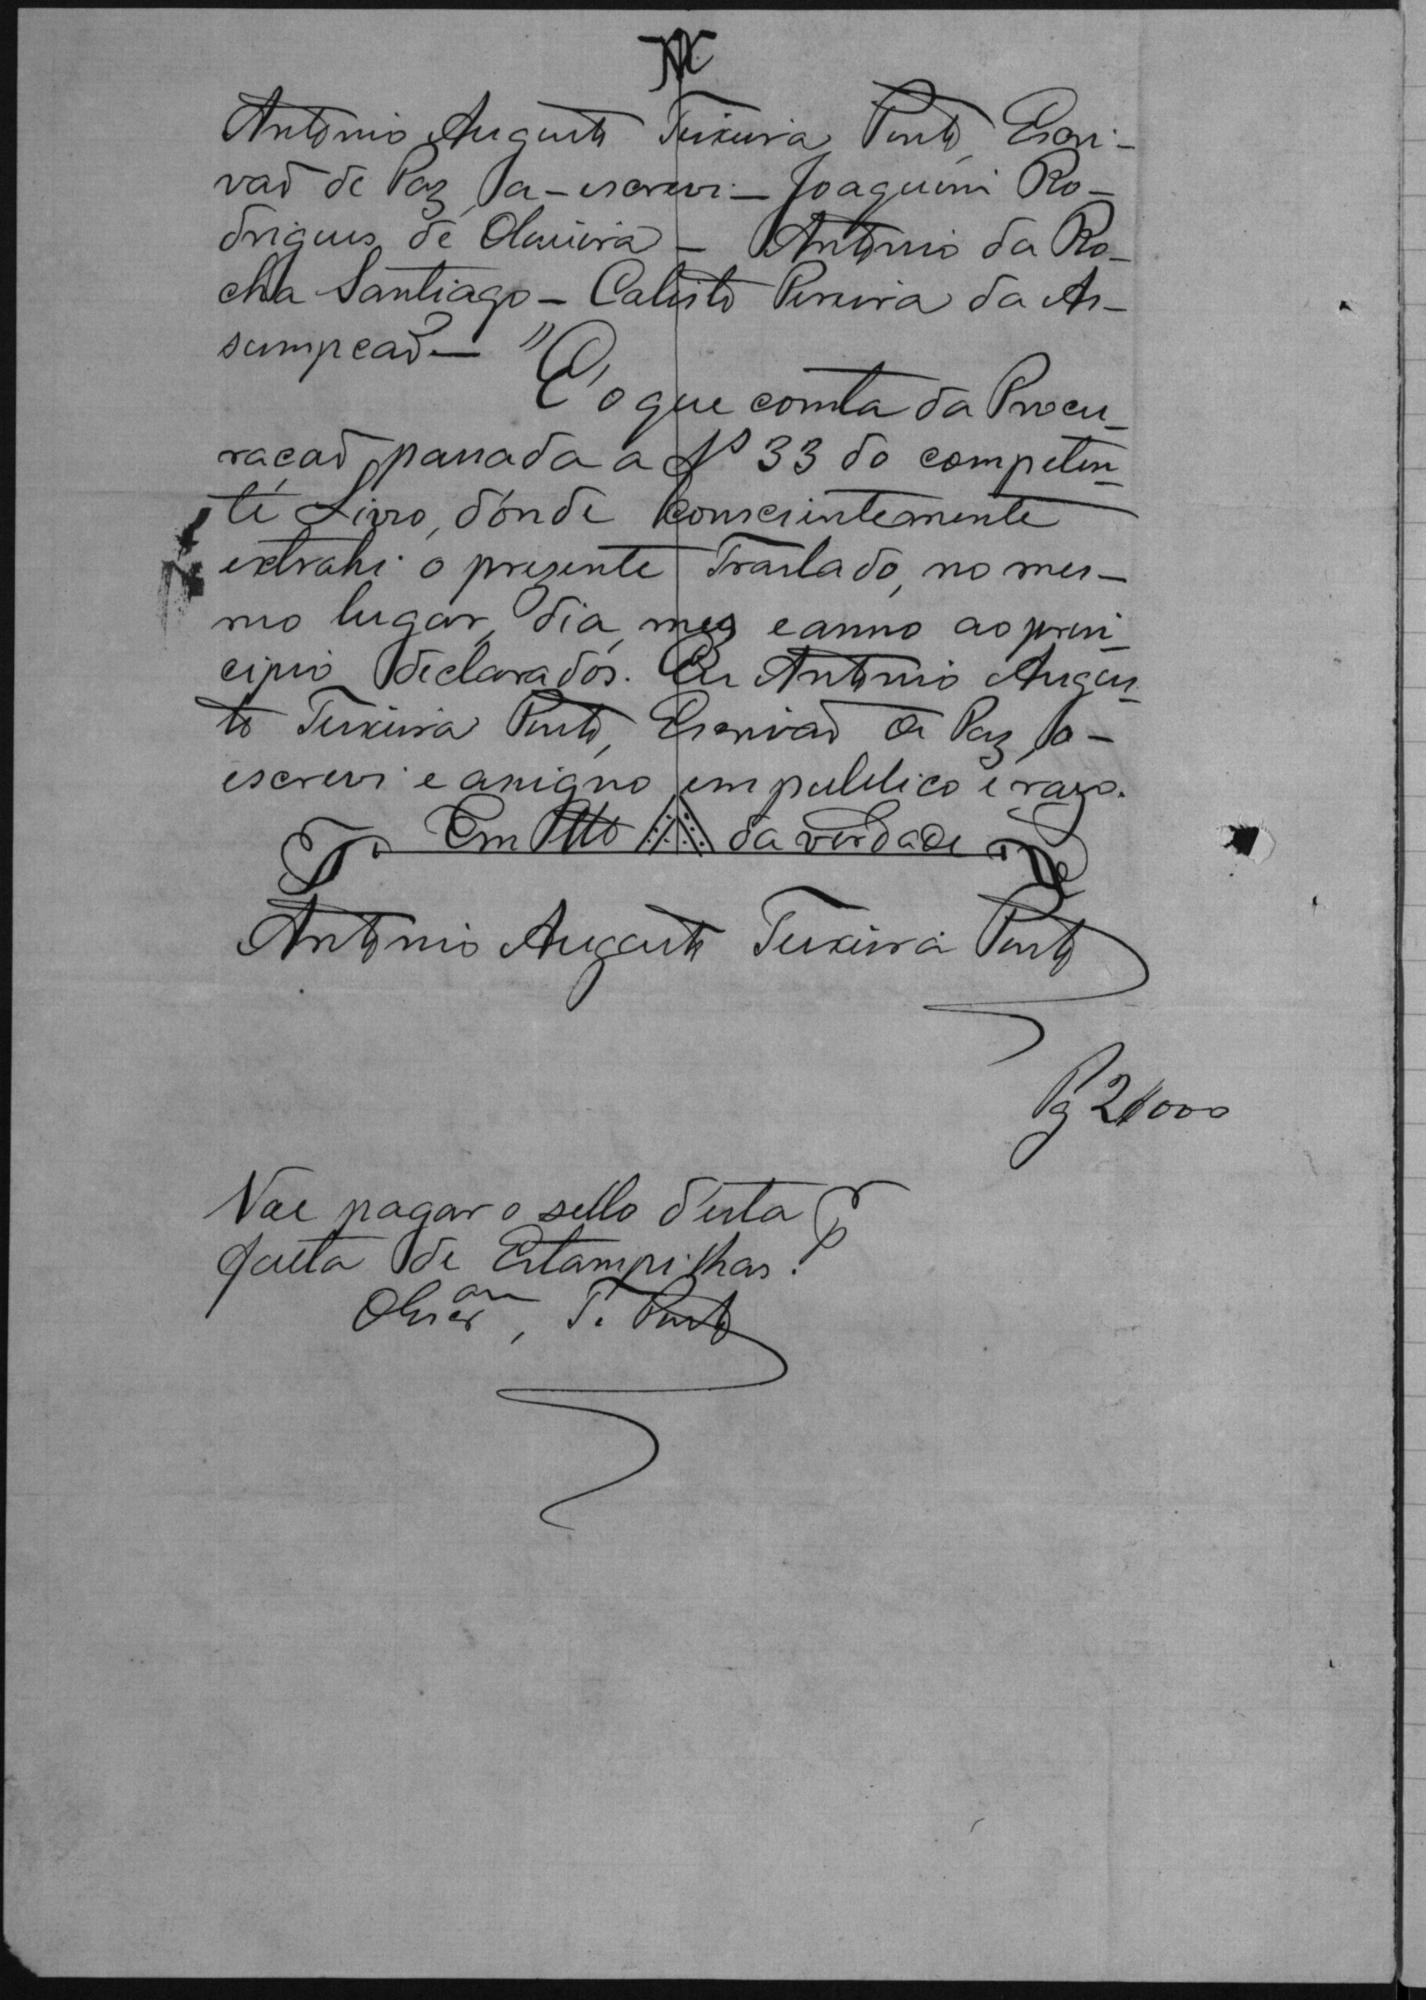 Antonio Augusto Teixeira Pinto, Escri-
vaõ de Paz, a-escrevi - Joaquim Ro-
drigues de Oliveira - Antonio da Ro-
cha Santiago - Calisto Pereira da As-
sumpcaõ - "
É o que consta da Procu-
raçaõ passada a fs 33 do competen-
te Livro, dónde conscientemente
extrahi o prezente Traslado, no mes-
mo lugar, dia, mez e anno ao prin-
cipio declarados. Eu Antonio Augus-
to Teixeira Pinto, Escrivaõ de Paz, o-
escrevi e assigno em publico e razo.
Em Ttto da verdade
Antonio Augusto Teixeira Pinto
Pg 2$000
Vae pagar o sello d'esta p
falta de Estampilhas.
T. Pinto